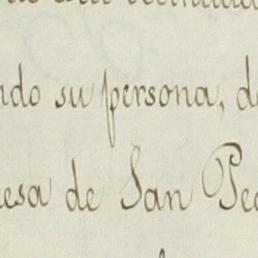 ndo su persona, d
esa de San Pe